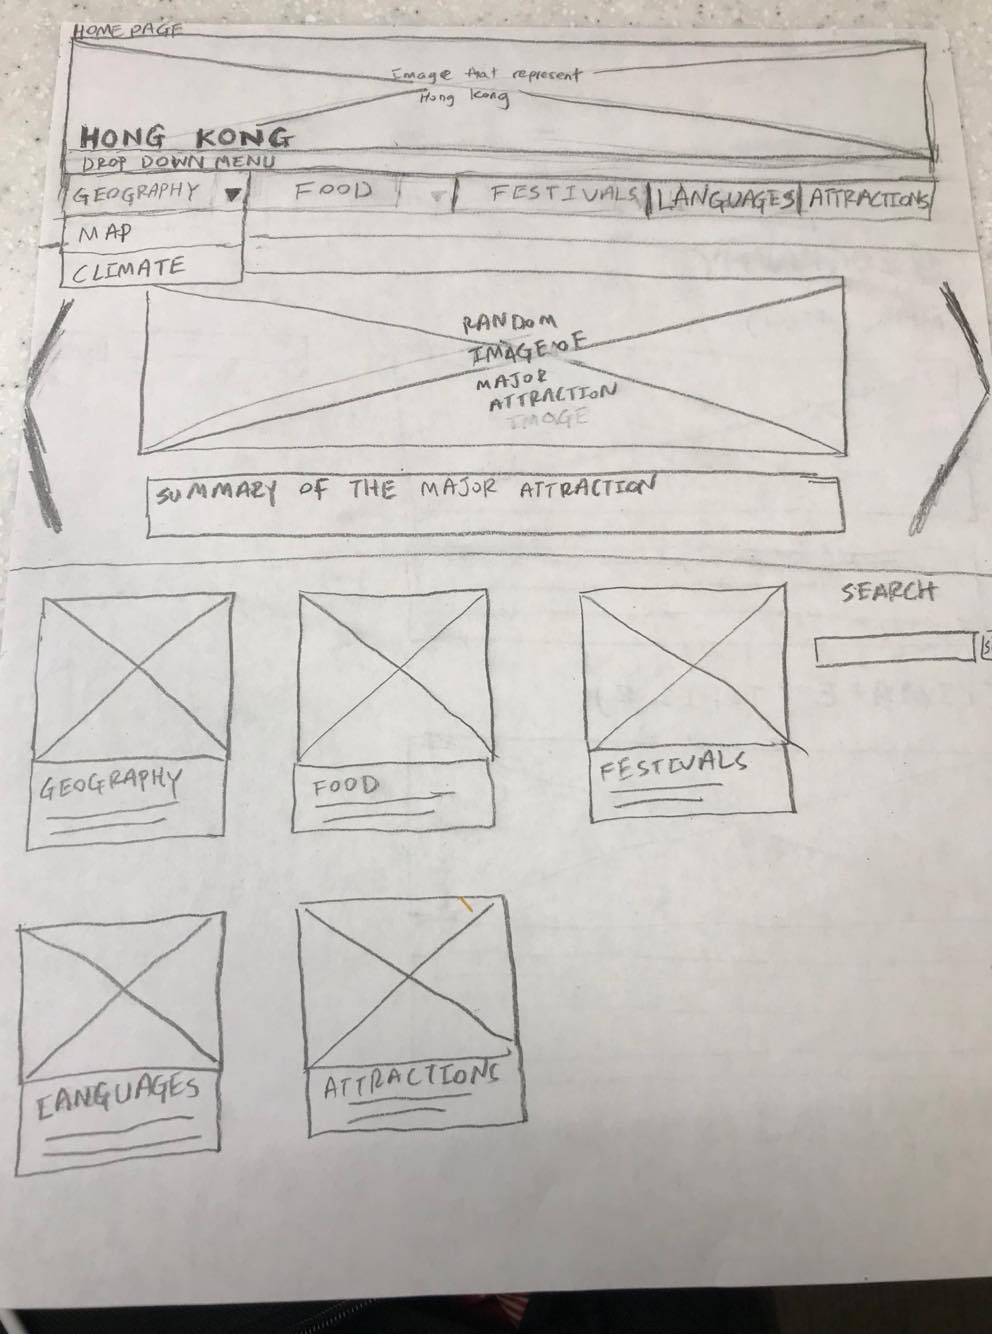 HOME PAGE
Image that represent
Hong Kong
HONG KONG
DROP DOWN MENU
GEOGRAPHY FOOD FESTIVALS LANGUAGES ATTRACTIONS
MAP
CLIMATE
RANDOM
IMAGE OF
MAJOR
ATTRACTION
IMAGE
SUMMARY OF THE MAJOR ATTRACTION
SEARCH
GEOGRAPHY
FOOD
FESTIVALS
LANGUAGES
ATTRACTIONS